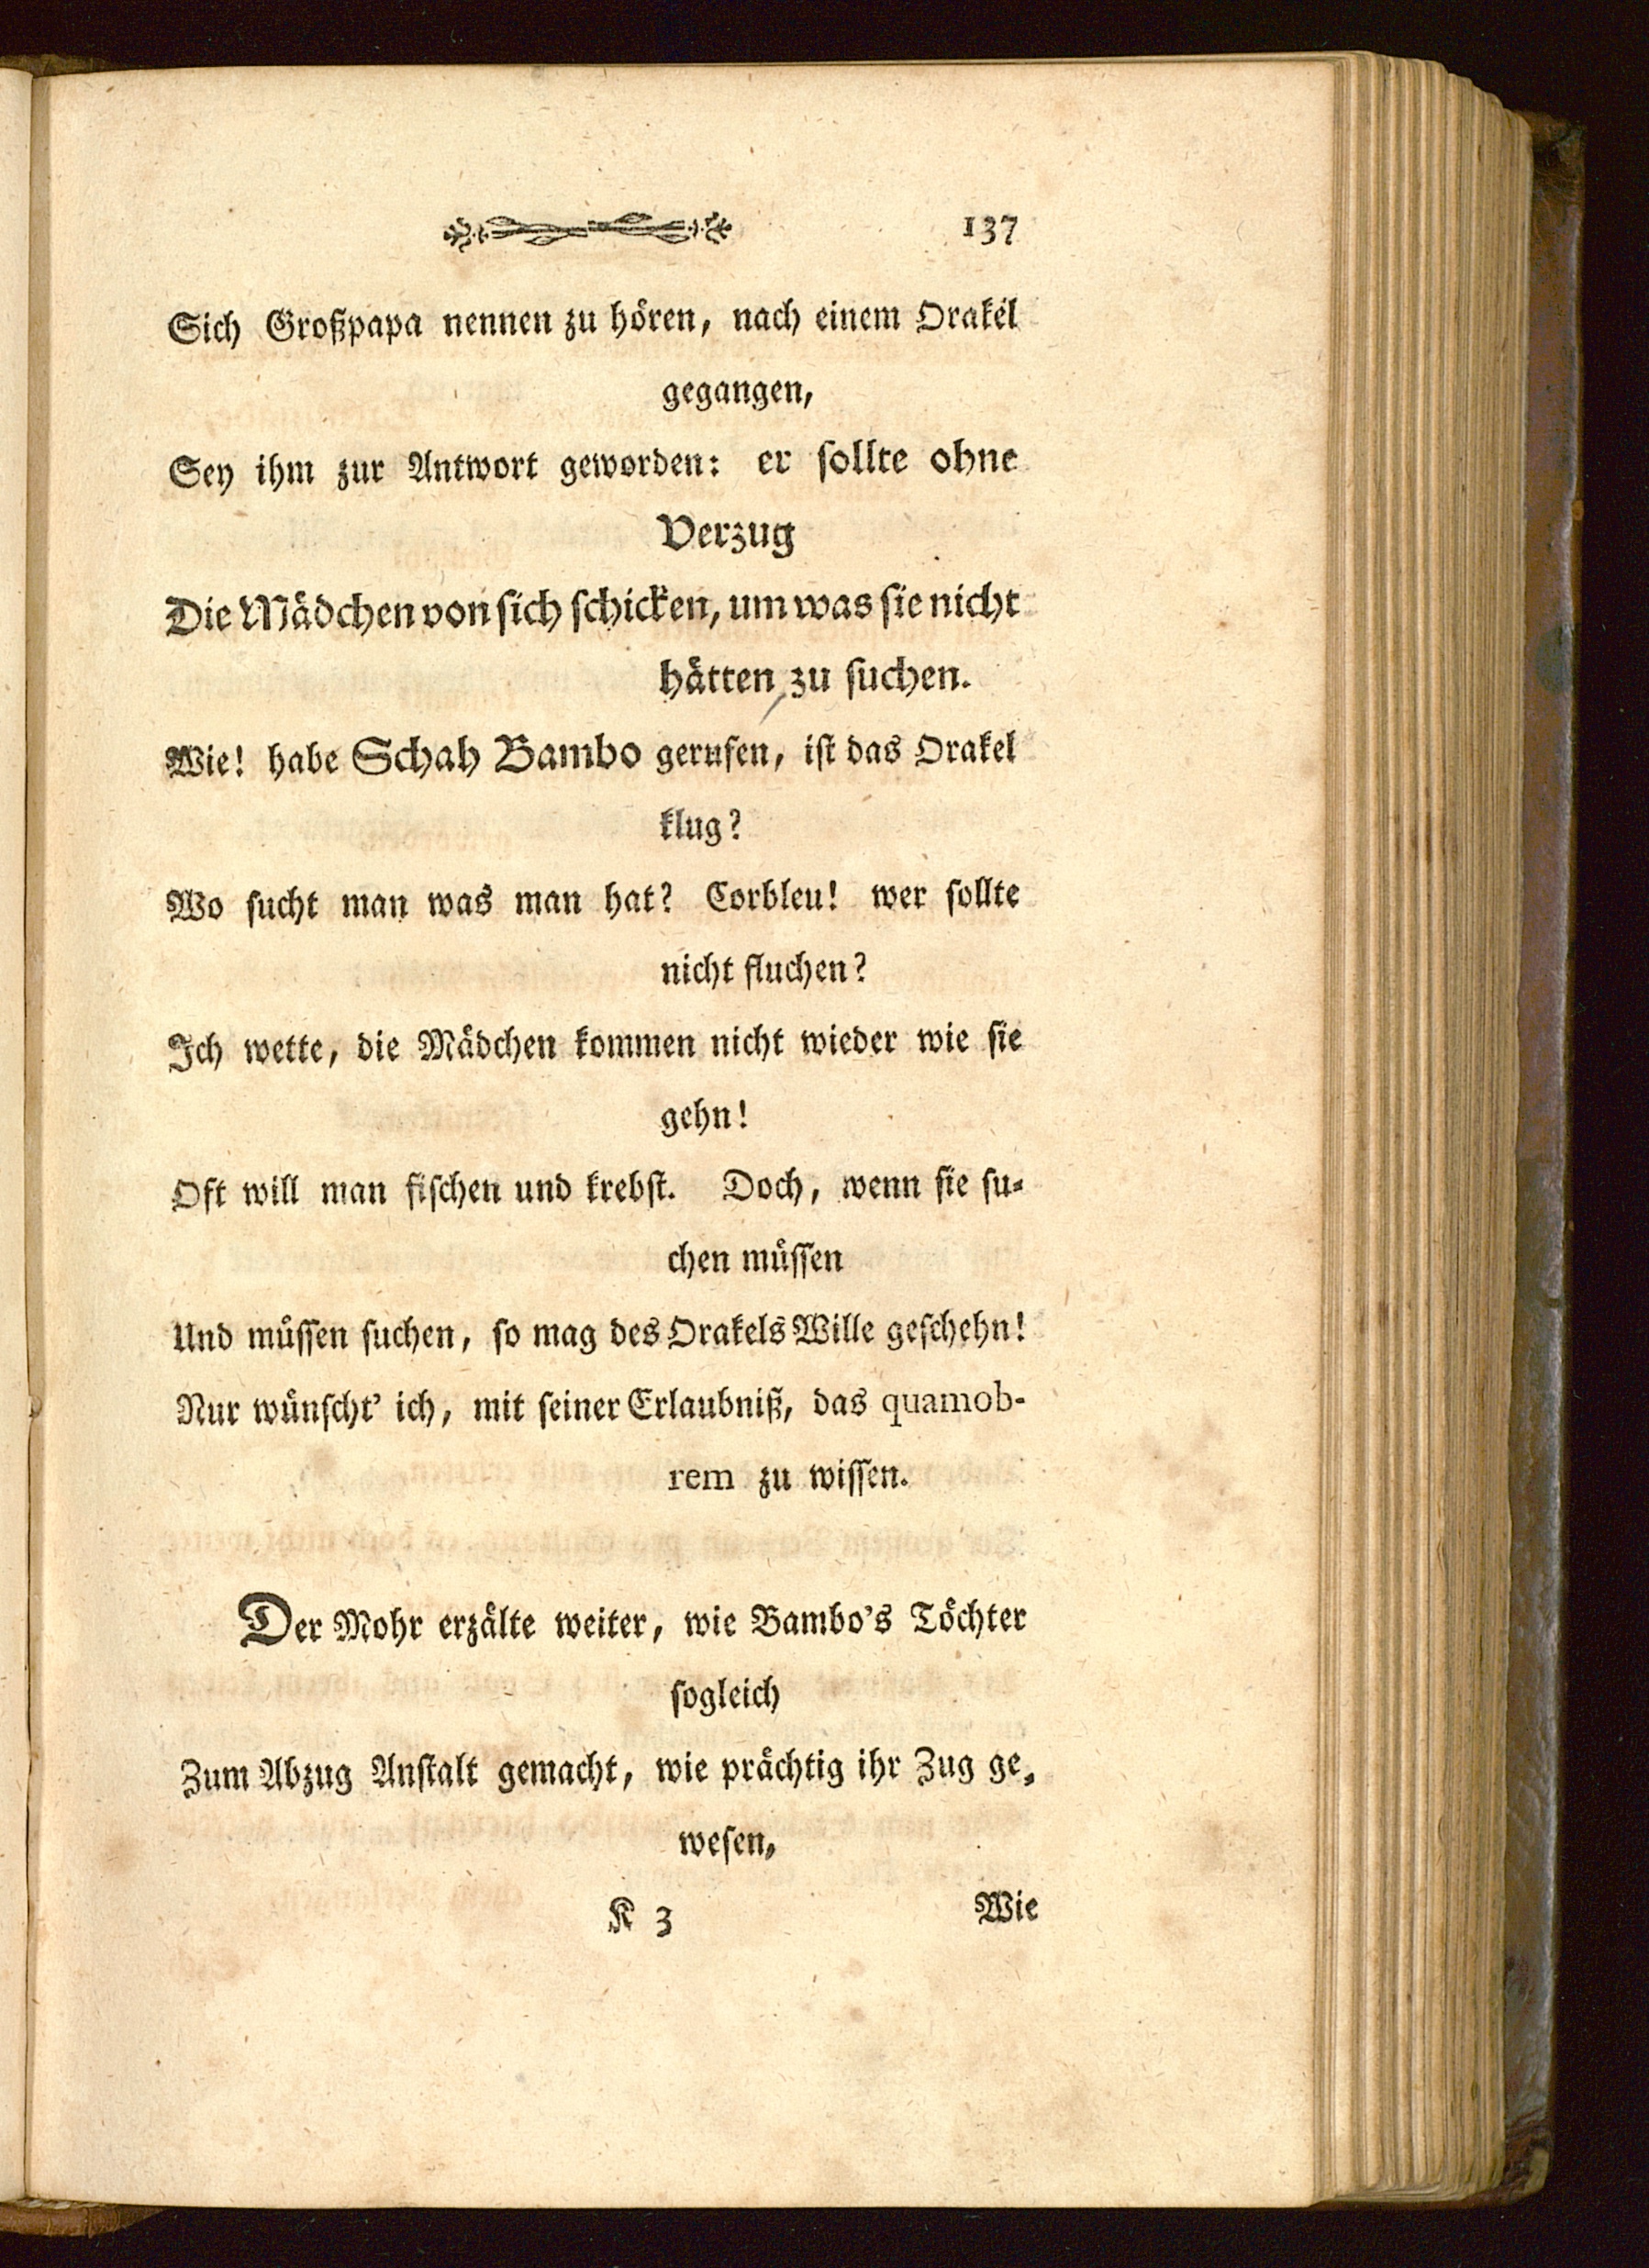 137
Sich Großpapa nennen zu hören, nach einem Orakel
gegangen,
Sey ihm zur Antwort geworden: er sollte ohne
Verzug
Die Mädchen von sich schicken, um was sie nicht
hätten zu suchen.
Wie! habe Schah Bambo gerufen, ist das Orakel
klug?
Wo sucht man was man hat? Corbleu! wer sollte
nicht fluchen?
Ich wette, die Mädchen kommen nicht wieder wie sie
gehn!
Oft will man fischen und krebst. Doch, wenn sie su-
chen müssen
Und müssen suchen, so mag des Orakels Wille geschehn!
Nur wünscht' ich, mit seiner Erlaubniß, das quamob-
rem zu wissen.
Der Mohr erzälte weiter, wie Bambo's Töchter
sogleich
Zum Abzug Anstalt gemacht, wie prächtig ihr Zug ge-
wesen,
K 3
Wie